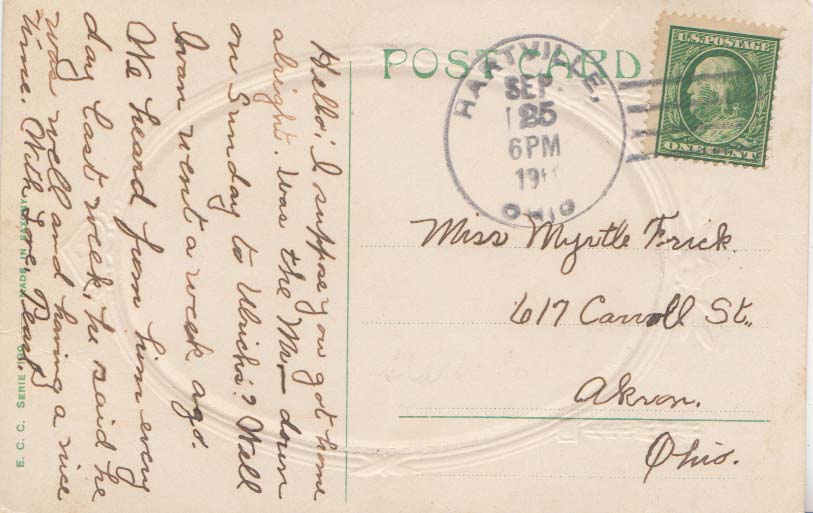 POST CARD
HARTVILLE,
SEP
25
6 PM
OHIO
U.S. POSTAGE
ONE CENT
Miss Myrtle Frick.
617 Carroll St.,
Akron.
Ohio.
Hello! I suppose you got home
alright. Was the Mr. down
on Sunday to Ulrichs? Well
Ivan went a week ago.
We heard from him every
day last week, he said he
was well and having a nice
time. With love, Pearl.
E. C. C. SERIE MADE IN